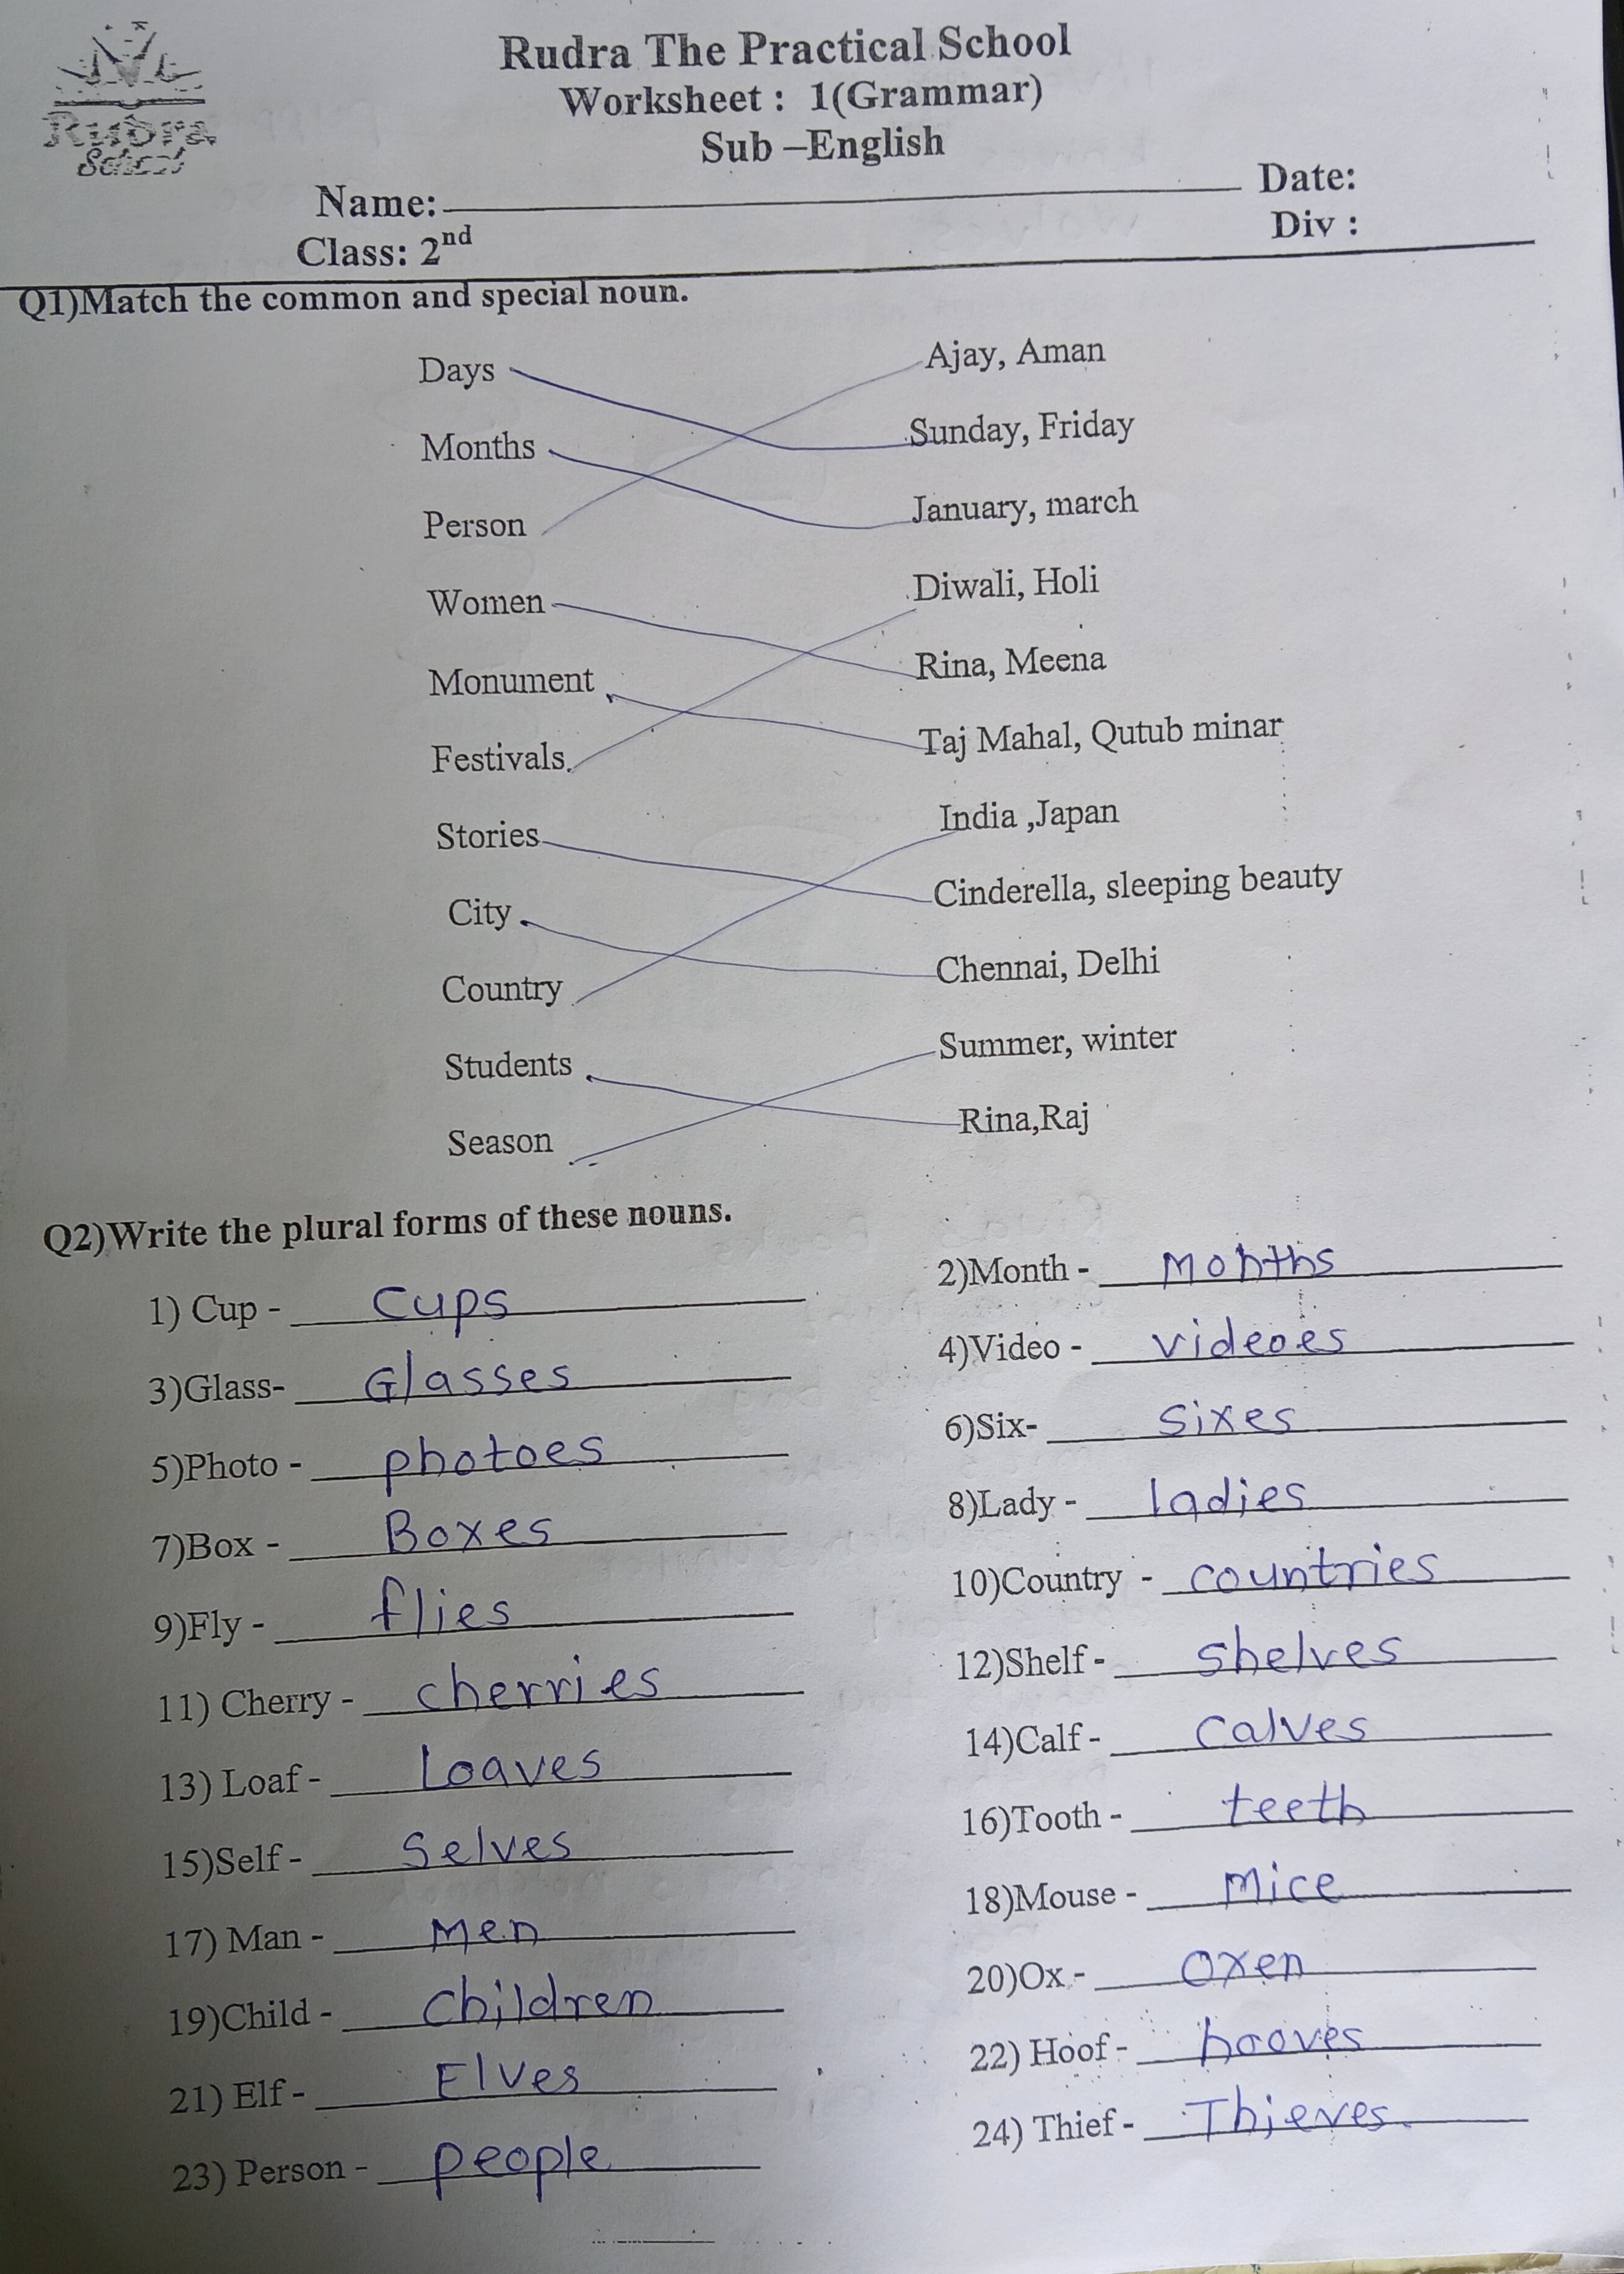 Rudra School
Rudra The Practical School
Worksheet : 1(Grammar)
Sub –English
Name: Date:
Class: 2nd Div :
Q1)Match the common and special noun.
Days Ajay, Aman
Months Sunday, Friday
Person January, march
Women Diwali, Holi
Monument Rina, Meena
Festivals Taj Mahal, Qutub minar
Stories India ,Japan
City Cinderella, sleeping beauty
Country Chennai, Delhi
Students Summer, winter
Season Rina,Raj
Q2)Write the plural forms of these nouns.
1) Cup - Cups 2)Month - Months
3)Glass- Glasses 4)Video - videoes
5)Photo - photoes 6)Six- sixes
7)Box - Boxes 8)Lady - ladies
9)Fly - flies 10)Country - countries
11) Cherry - cherries 12)Shelf - shelves
13) Loaf - Loaves 14)Calf - calves
15)Self - Selves 16)Tooth - teeth
17) Man - Men 18)Mouse - Mice
19)Child - Children 20)Ox - oxen
21) Elf - Elves 22) Hoof - hooves
23) Person - people 24) Thief - Thieves.